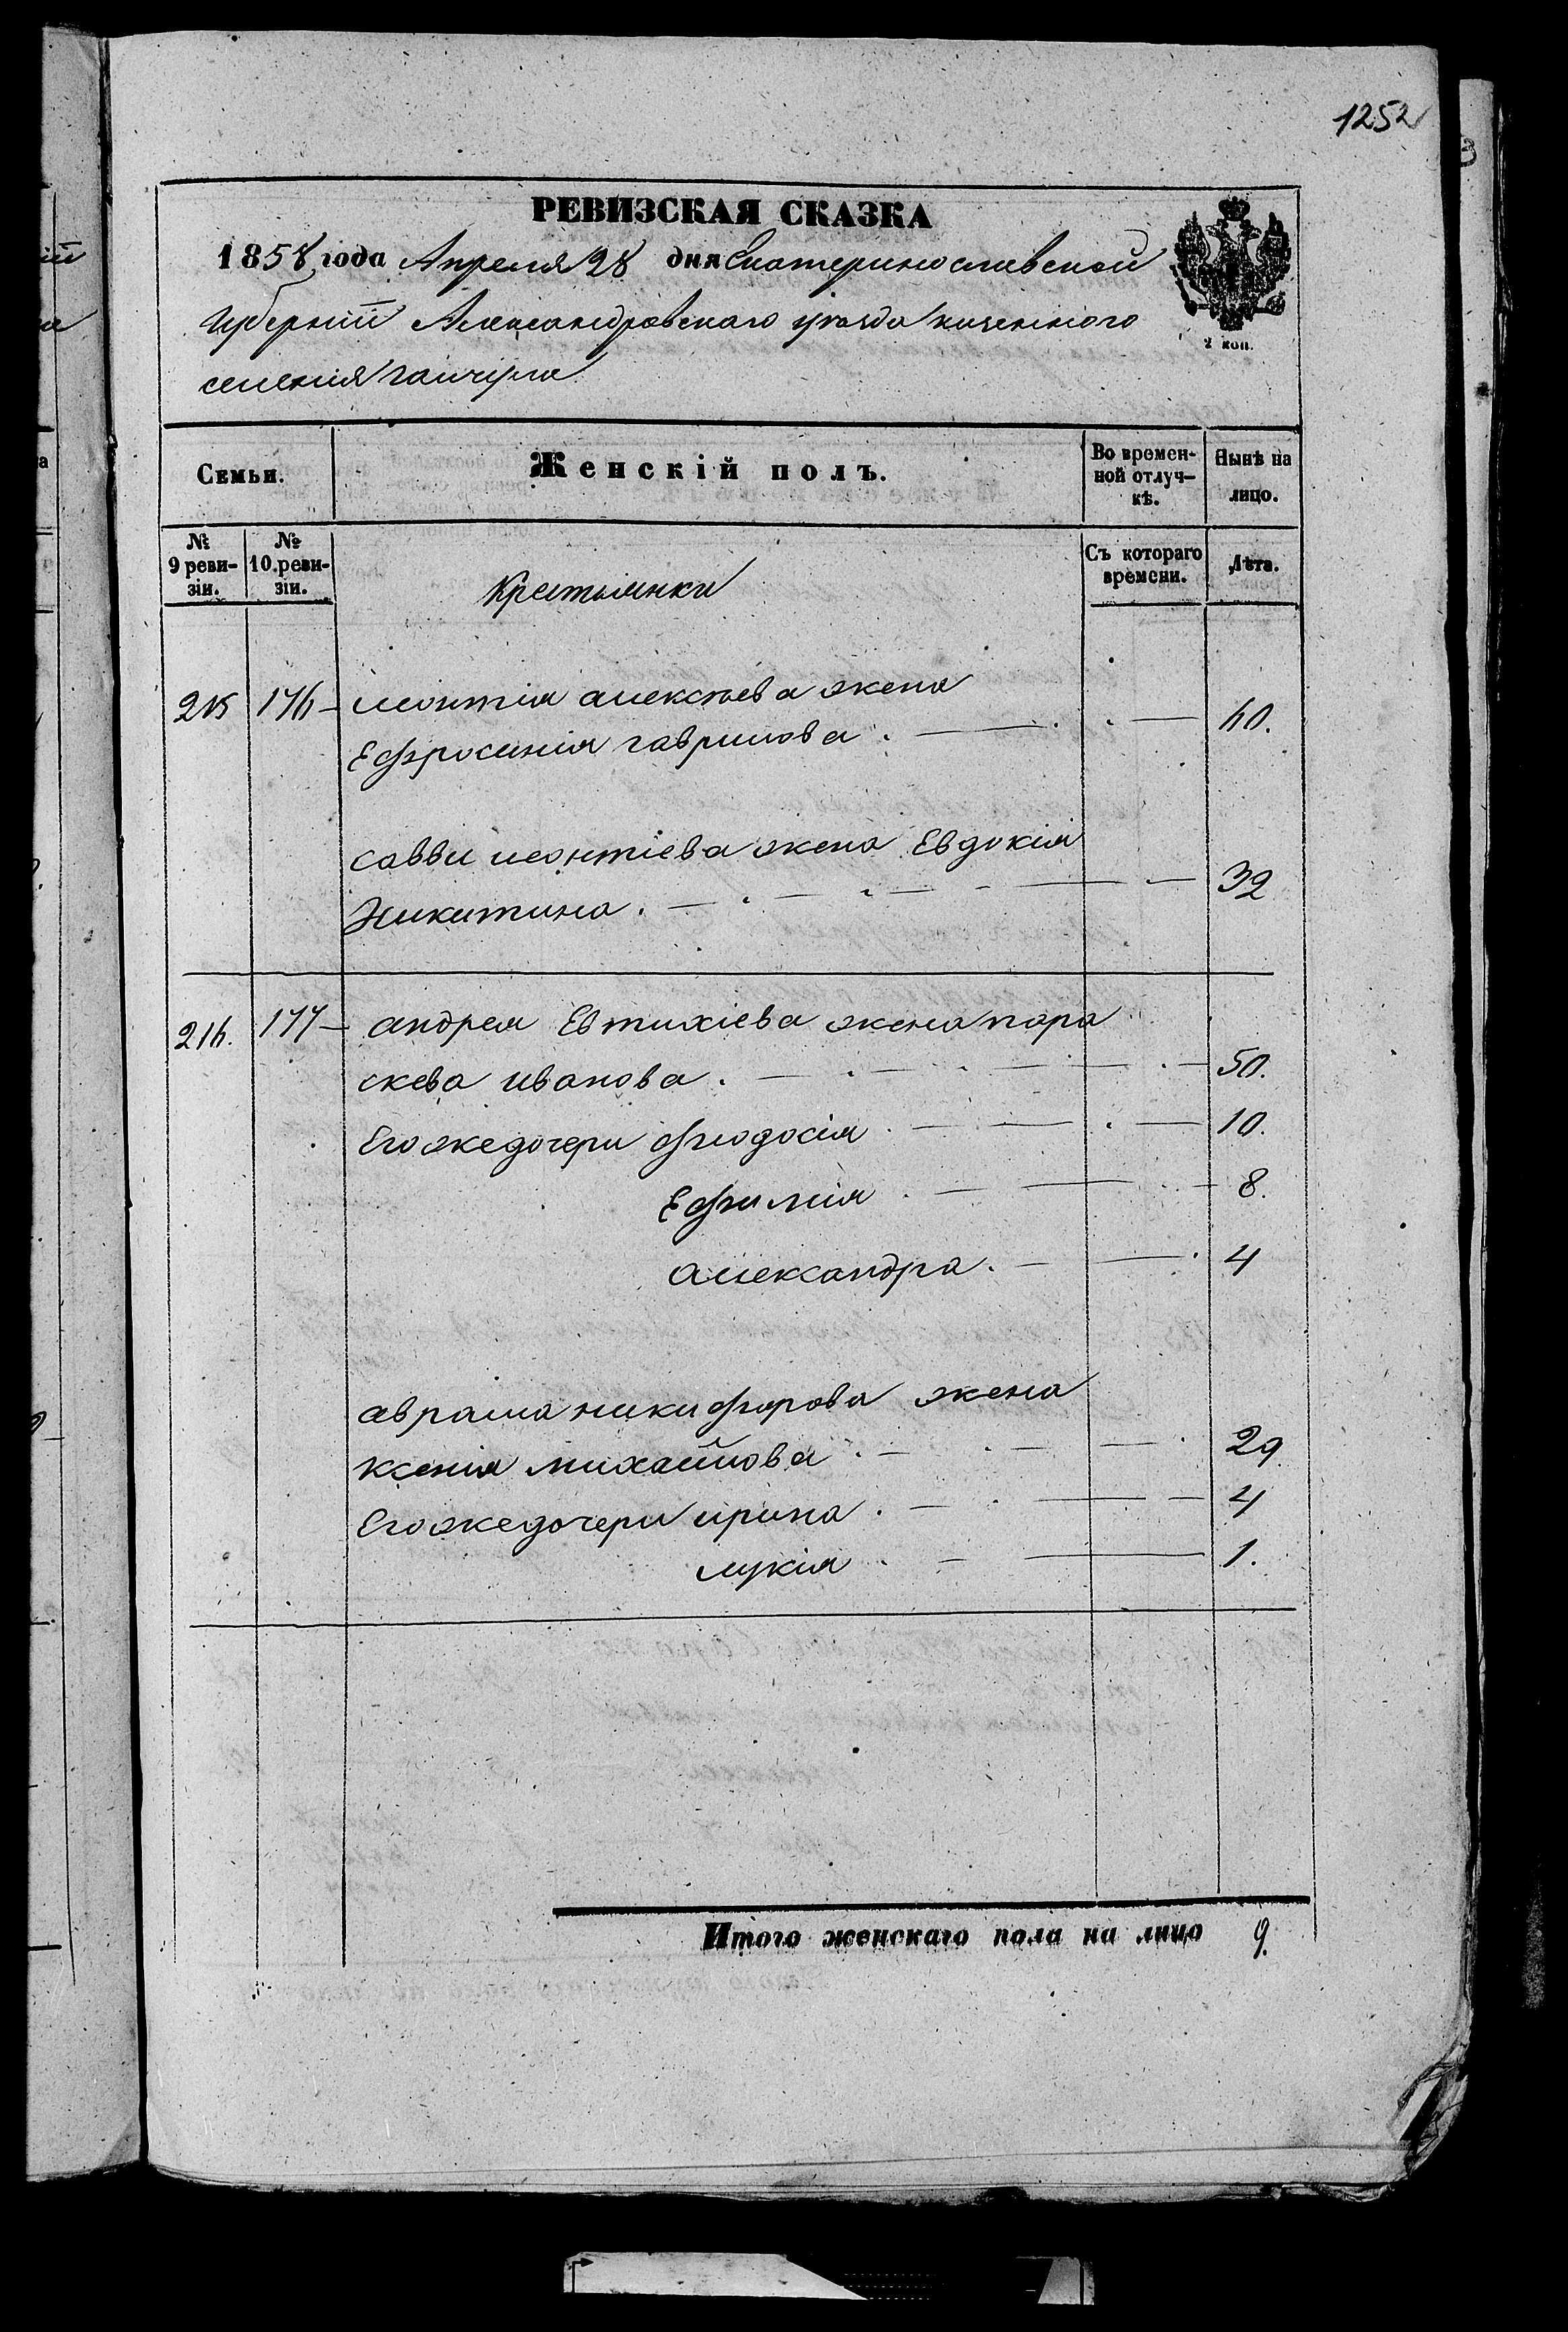 1252
РЕВИЗСКАЯ СКАЗКА
1858 года Апреля 28 дня Екатеринославской
Губернiи Александровскаго уѣзда казеннаго
селенiя гайчула
2 коп.
Семьи.
Женскiй полъ.
Во времен-
ной отлуч-
кѣ.
Нынѣ на
лицо.
№
9 реви-
зiи.
№
10 реви-
зiи.
Съ котораго
времени.
Лѣта.
Крестьянки
215 176 - леонтiя алексѣева жена
Ефросинiя гаврилова . — . — 60.
саввы леонтiева жена Евдокiя
Никитина . — . — . — 32
216. 177 - андрея Евтихiева жена пара
скева иванова . — . — 50.
Его же дочери Феодосiя . — . — 10.
Ефимiя . — . — 8.
александра . — . 4
аврама никифорова жена
Ксенiя михайлова . — . — 29.
Его же дочери ирина . — . — 4
лукiя . — 1.
Итого женскаго пола на лицо 9.